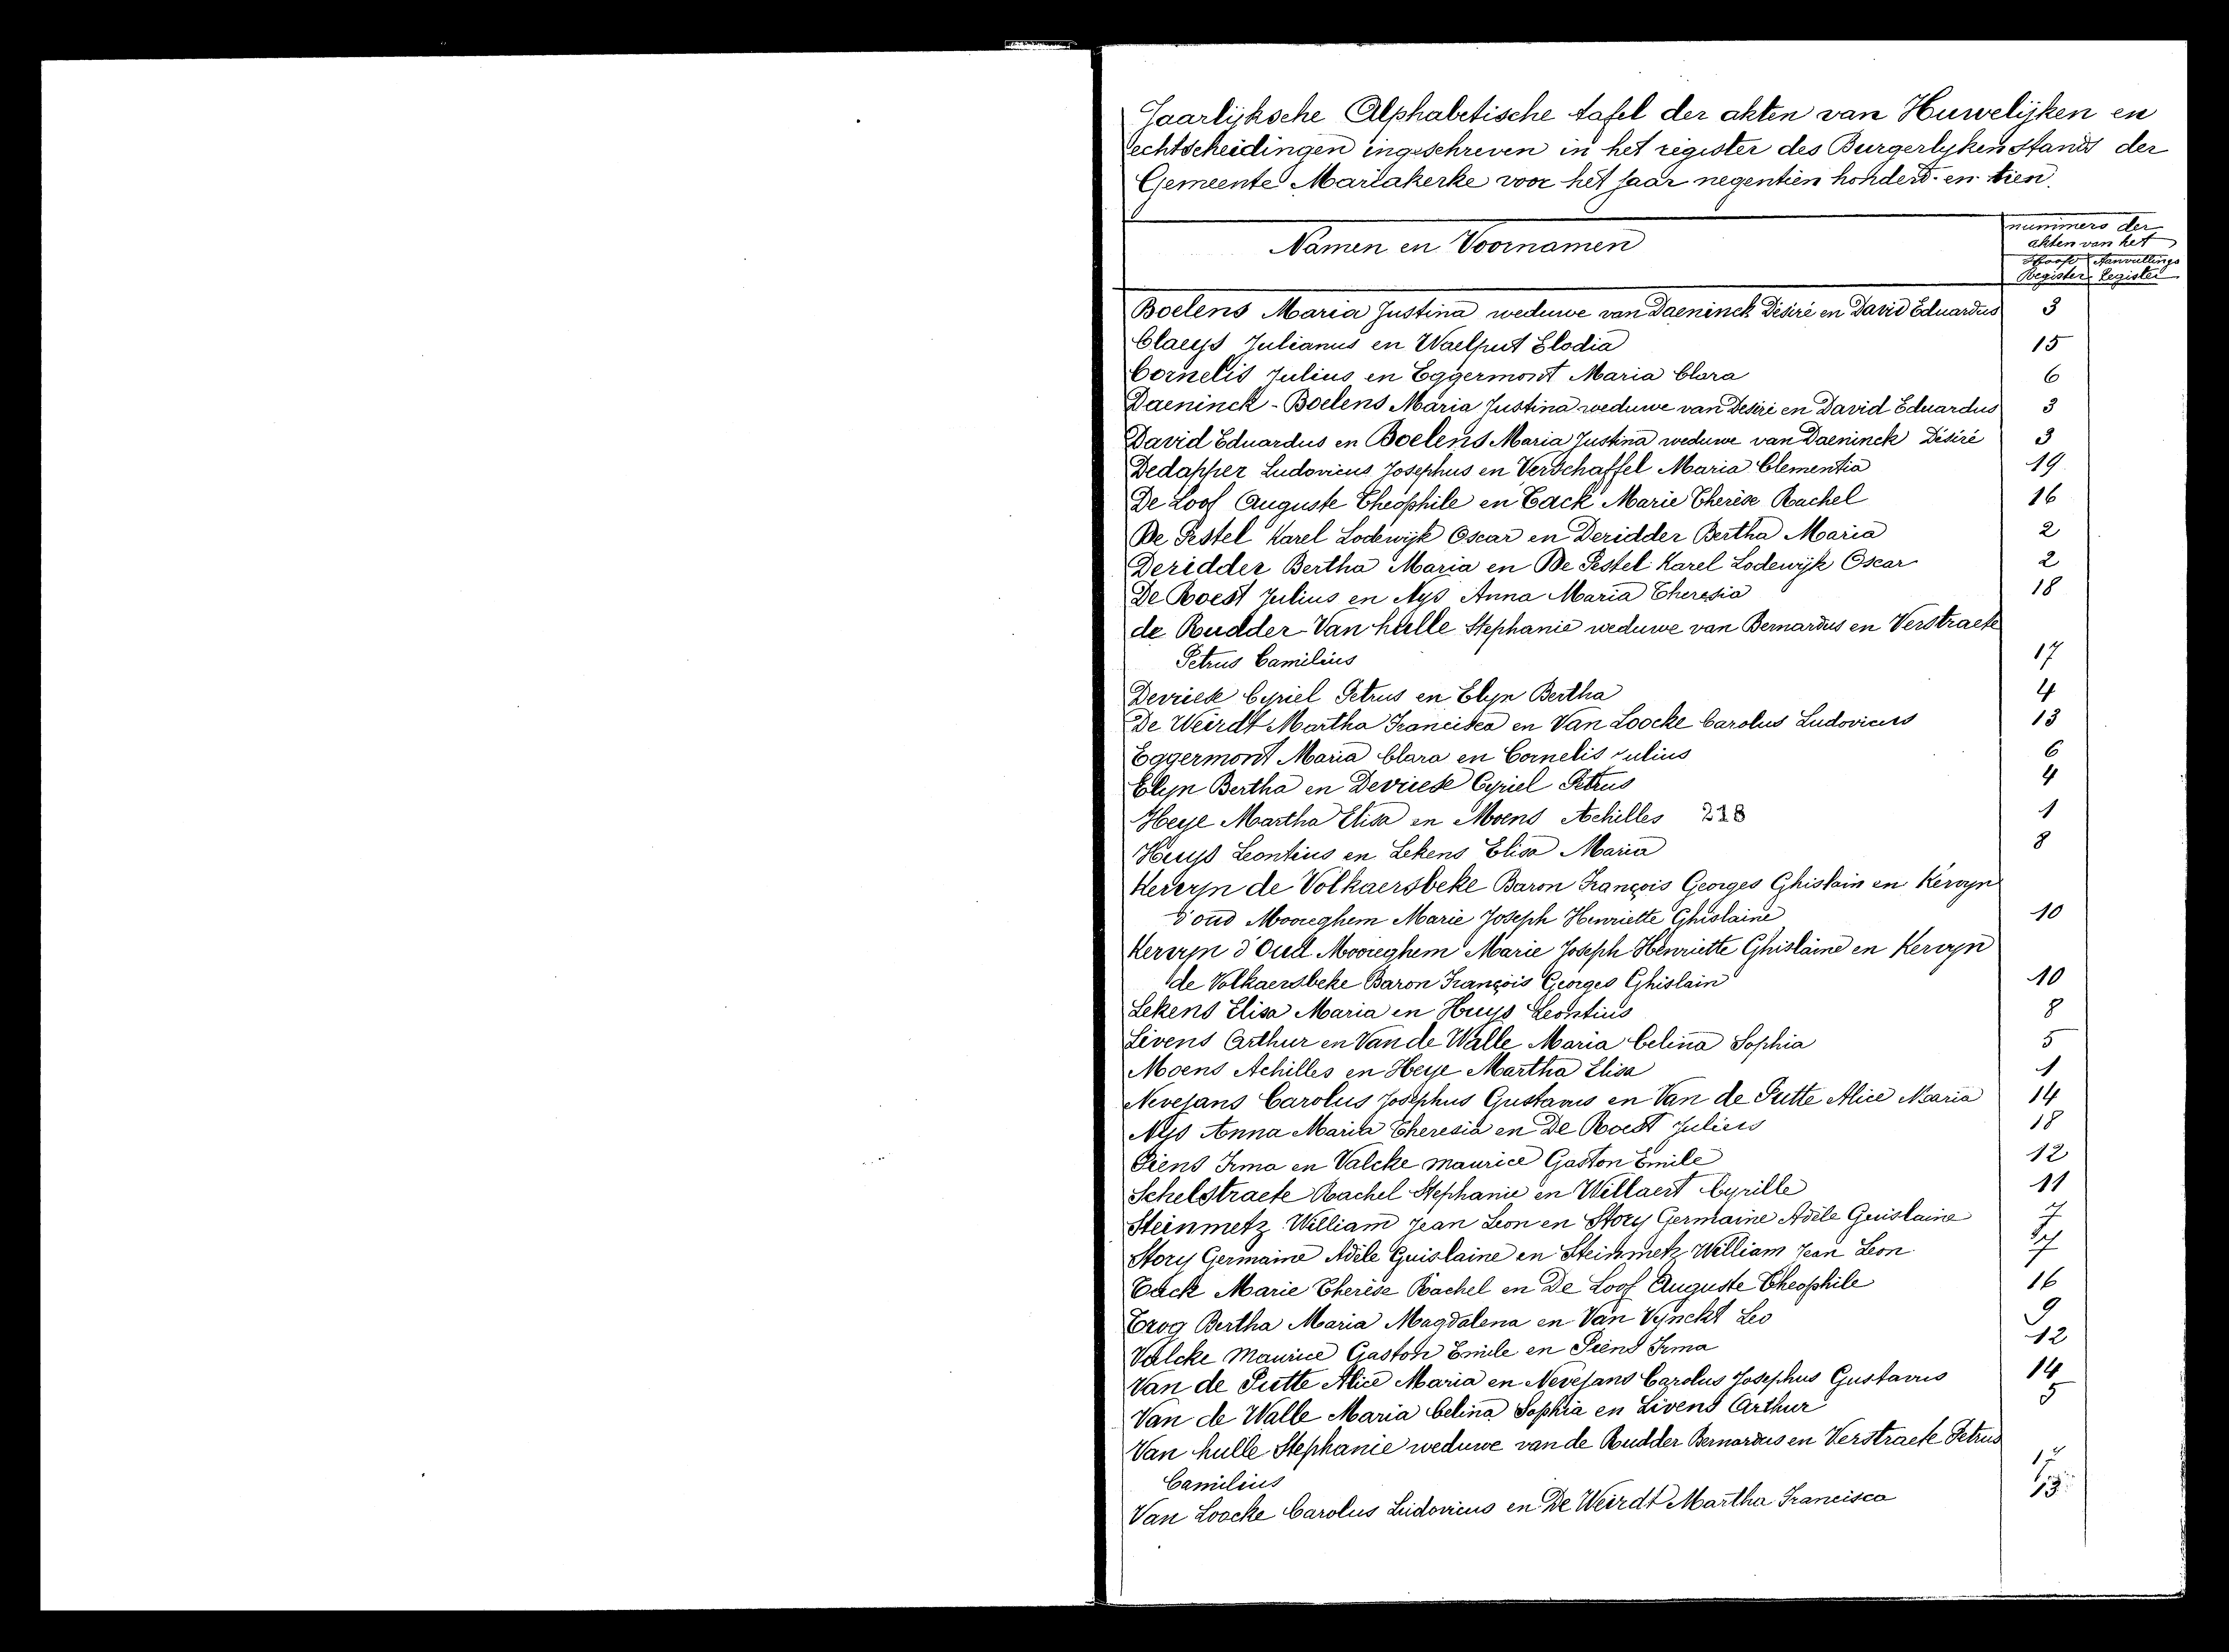 Jaarlijksche Alphabetische tafel der akten van Huwelijken en
echtscheidingen ingeschreven in het register des Burgerlyken stands der
Gemeente Mariakerke voor het jaar negentien honderd en tien.
Namen en Voornamen
nummers der
akten van het
Hoofd Aanvullings
Register Register
Boelens Maria Justina weduwe van Daeninck Désiré en David Eduardus 3
Claeys Julianus en Waelput Elodia 15
Cornelis Julius en Eggermont Maria Clara 6
Daeninck - Boelens Maria Justina weduwe van Désiré en David Eduardus 3
David Eduardus en Boelens Maria Justina weduwe van Daeninck Désiré 3
Dedapper Ludovicus Josephus en Verschaffel Maria Clementia 19
De Loof Auguste Theophile en Tack Marie Therèse Rachel 16
De Pestel Karel Lodewijk Oscar en Deridder Bertha Maria 2
Deridder Bertha Maria en De Pestel Karel Lodewijk Oscar 2
De Roest Julius en Nys Anna Maria Theresia 18
de Rudder - Van hulle Stephanie weduwe van Bernardus en Verstraete
Petrus Camilius 17
Devriese Cyriel Petrus en Elyn Bertha 4
De Weirdt Martha Francisca en Van Loocke Carolus Ludovicus 13
Eggermont Maria Clara en Cornelis Julius 6
Elyn Bertha en Devriese Cyriel Petrus 4
Heye Martha Elisa en Moens Achilles 218 1
Huys Leontius en Lekens Elisa Maria 8
Kervyn de Volkaersbeke Baron François Georges Ghislain en Kervyn
d'oud Mooreghem Marie Joseph Henriette Ghislaine 10
Kervyn d'Oud Mooreghem Marie Joseph Henriette Ghislaine en Kervyn
de Volkaersbeke Baron François Georges Ghislain 10
Lekens Elisa Maria en Huys Leontius 8
Livens Arthur en Van de Walle Maria Celina Sophia 5
Moens Achilles en Heye Martha Elisa 1
Nevejans Carolus Josephus Gustavus en Van de Putte Alice Maria 14
Nys Anna Maria Theresia en De Roest Julius 18
Piens Irma en Valcke Maurice Gaston Emile 12
Schelstraete Rachel Stephanie en Willaert Cyrille 11
Steinmetz William Jean Leon en Story Germaine Adèle Guislaine 7
Story Germaine Adèle Guislaine en Steinmetz William Jean Leon 7
Tack Marie Therèse Rachel en De Loof Auguste Theophile 16
Trog Bertha Maria Magdalena en Van Vynckt Leo 9
Valcke Maurice Gaston Emile en Piens Irma 12
Van de Putte Alice Maria en Nevejans Carolus Josephus Gustavus 14
Van de Walle Maria Celina Sophia en Livens Arthur 5
Van hulle Stephanie weduwe van de Rudder Bernardus en Verstraete Petrus
Camilius 17
Van Loocke Carolus Ludovicus en De Weirdt Martha Francisca 13